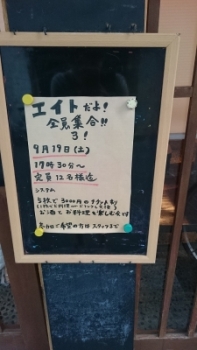 エイトだよ!
全員集合!!
3!
9月19日(土)
17時30分〜
定員12名様迄
システム
5枚で3000円の
お酒とお料理を楽しむ
ご希望の方はスタッフまで